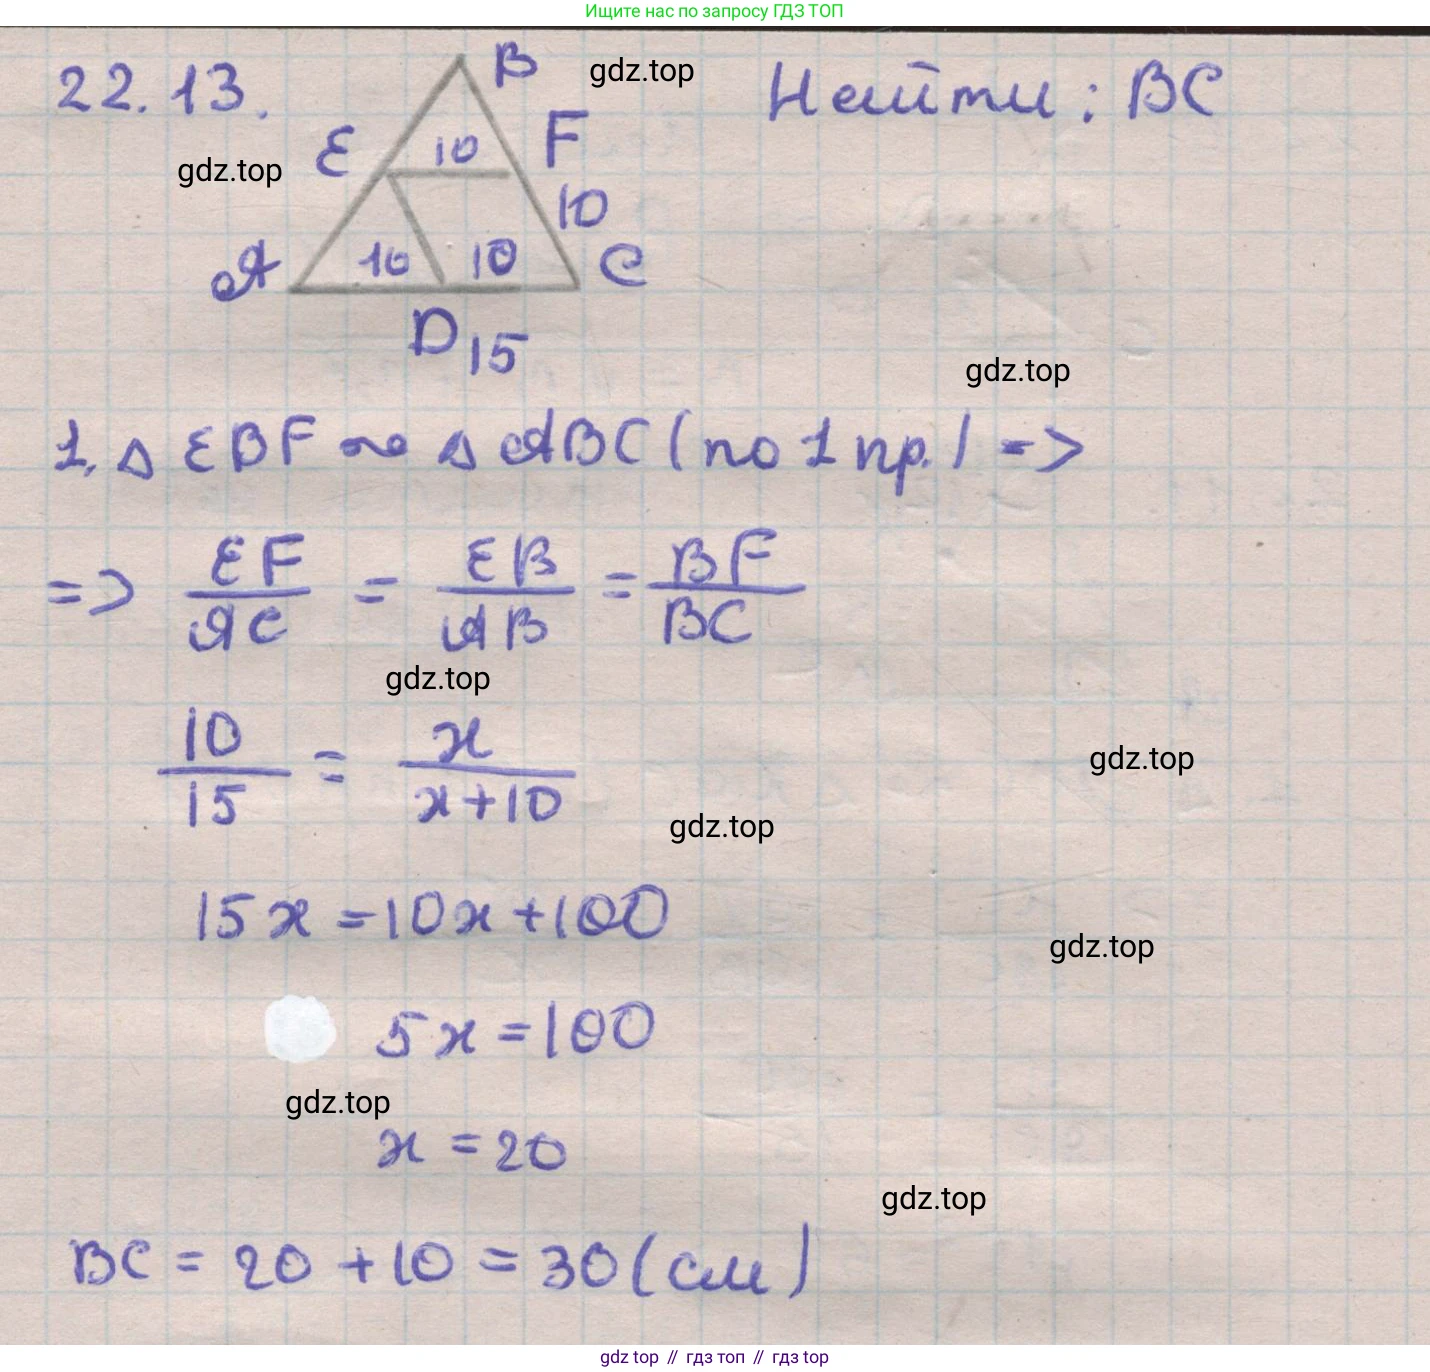 Ищите нас по запросу ГДЗ ТОП
22.13.
B
gdz.top
Найти: BC
E
10
F
gdz.top
10
A
10
10
C
D
15
gdz.top
1. △ EBF ~ △ ABC (по 1 пр.) =>
=> EF/AC = EB/AB = BF/BC
gdz.top
10/15 = x/x+10
gdz.top
gdz.top
15x = 10x + 100
gdz.top
5x = 100
gdz.top
x = 20
gdz.top
BC = 20 + 10 = 30 (см)
gdz top // гдз топ // гдз top